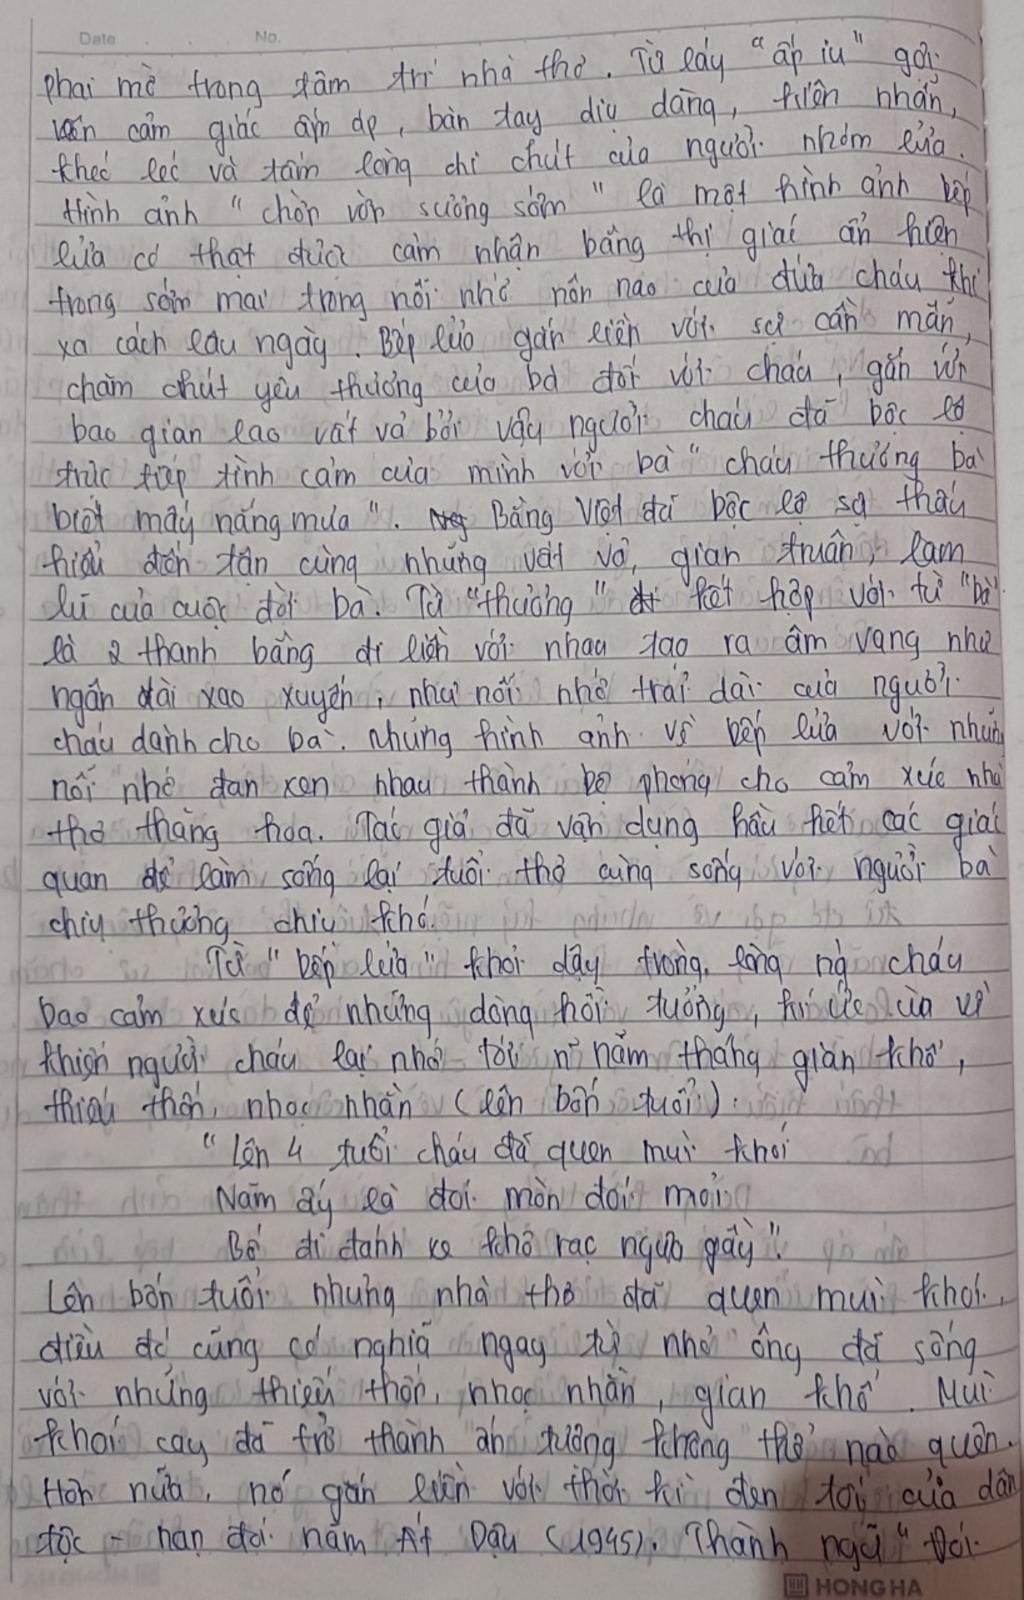 Date . . . No.
phai mờ trong tâm trí nhà thơ. Từ láy "ấp iu" gợi
cảm giác ấm áp, bàn tay dịu dàng, kiên nhẫn,
khéo léo và tấm lòng chi chút của người nhóm lửa.
Hình ảnh "chờn vờn sương sớm" là một hình ảnh bếp
lửa có thật được cảm nhận bằng thị giác ẩn hiện
trong sớm mai trong nỗi nhớ nôn nao của đứa cháu khi
xa cách lâu ngày. Bếp lửa gắn liền với sự cần mẫn,
chăm chút yêu thương của bà đối với cháu, gắn với
bao gian lao vất vả bởi vậy người cháu đã bộc lộ
trực tiếp tình cảm của mình với bà "cháu thương bà
biết mấy nắng mưa". Bằng Việt đã bộc lộ sự thấu
hiểu đến tận cùng những vất vả, gian truân, lam
lũ của cuộc đời bà. Từ "thương" kết hợp với từ "bà"
là 2 thanh bằng đi liền với nhau tạo ra âm vang như
ngân dài xao xuyến, như nỗi nhớ trải dài của người
cháu dành cho bà. Những hình ảnh về bếp lửa với những
nỗi nhớ đan xen nhau thành bệ phóng cho cảm xúc nhà
thơ thăng hoa. Tác giả đã vận dụng hầu hết các giác
quan để làm sống lại tuổi thơ cùng sống với người bà
chịu thương chịu khó.
Từ "bếp lửa" khơi dậy trong lòng ng cháu
bao cảm xúc để những dòng hồi tưởng, kí ức ùa về
khiến người cháu lại nhớ tới n~ năm tháng gian khổ,
thiếu thốn, nhọc nhằn (lên bốn tuổi):
"Lên 4 tuổi cháu đã quen mùi khói
Năm ấy là đói mòn đói mỏi
Bố đi đánh xe khô rạc ngựa gầy".
Lên bốn tuổi nhưng nhà thơ đã quen mùi khói,
điều đó cũng có nghĩa ngay từ nhỏ ông đã sống
với những thiếu thốn, nhọc nhằn, gian khổ. Mùi
khói cay đã trở thành ấn tượng không thể nào quên.
Hơn nữa, nó gắn liền với thời kì đen tối của dân
tộc - nạn đói năm Ất Dậu (1945). Thành ngữ "Đói
HONG HA